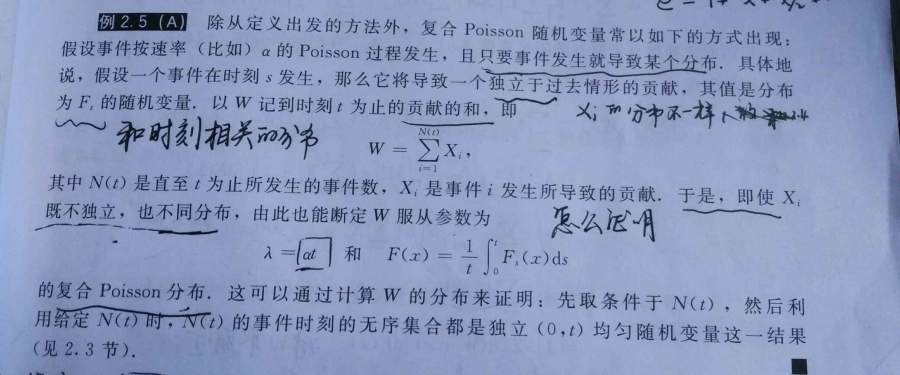 例 2.5 (A) 除从定义出发的方法外，复合 Poisson 随机变量常以如下的方式出现：
假设事件按速率（比如）α 的 Poisson 过程发生，且只要事件发生就导致某个分布．具体地
说，假设一个事件在时刻 s 发生，那么它将导致一个独立于过去情形的贡献，其值是分布
为 Fₛ 的随机变量．以 W 记到时刻 t 为止的贡献的和，即
Xᵢ 的分布不一样
和时刻相关的分布
W = ∑_{i=1}^{N(t)} Xᵢ,
其中 N(t) 是直至 t 为止所发生的事件数，Xᵢ 是事件 i 发生所导致的贡献．于是，即使 Xᵢ
既不独立，也不同分布，由此也能断定 W 服从参数为
怎么证明
λ = αt 和 F(x) = \frac{1}{t} ∫₀ᵗ Fₛ(x)ds
的复合 Poisson 分布．这可以通过计算 W 的分布来证明：先取条件于 N(t)，然后利
用给定 N(t) 时，N(t) 的事件时刻的无序集合都是独立 (0,t) 均匀随机变量这一结果
（见 2.3 节）．